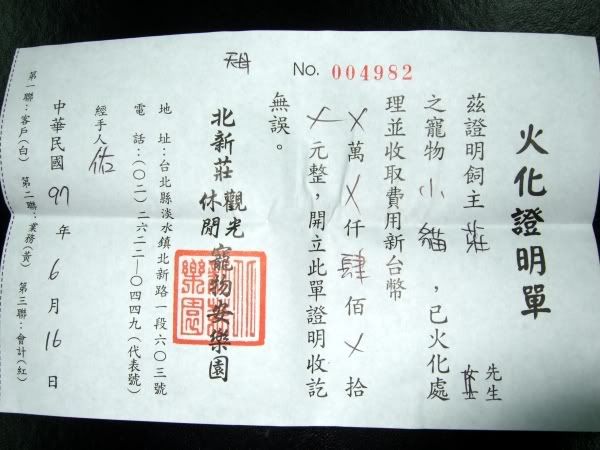 天母
No. 004982
火化證明單
茲證明飼主莊 先生
女士
之寵物小貓，已火化處
理並收取費用新台幣
X萬X仟肆佰X拾
X元整，開立此單證明收訖
無誤。
北新莊觀光休閒寵物安樂園
地　址：台北縣淡水鎮北新路一段六０三號
電　話：(０二)二六二二一０四四九(代表號)
經手人 佑
中華民國 97 年 6 月 16 日
第一聯：客戶(白) 第二聯：業務(黃) 第三聯：會計(紅)